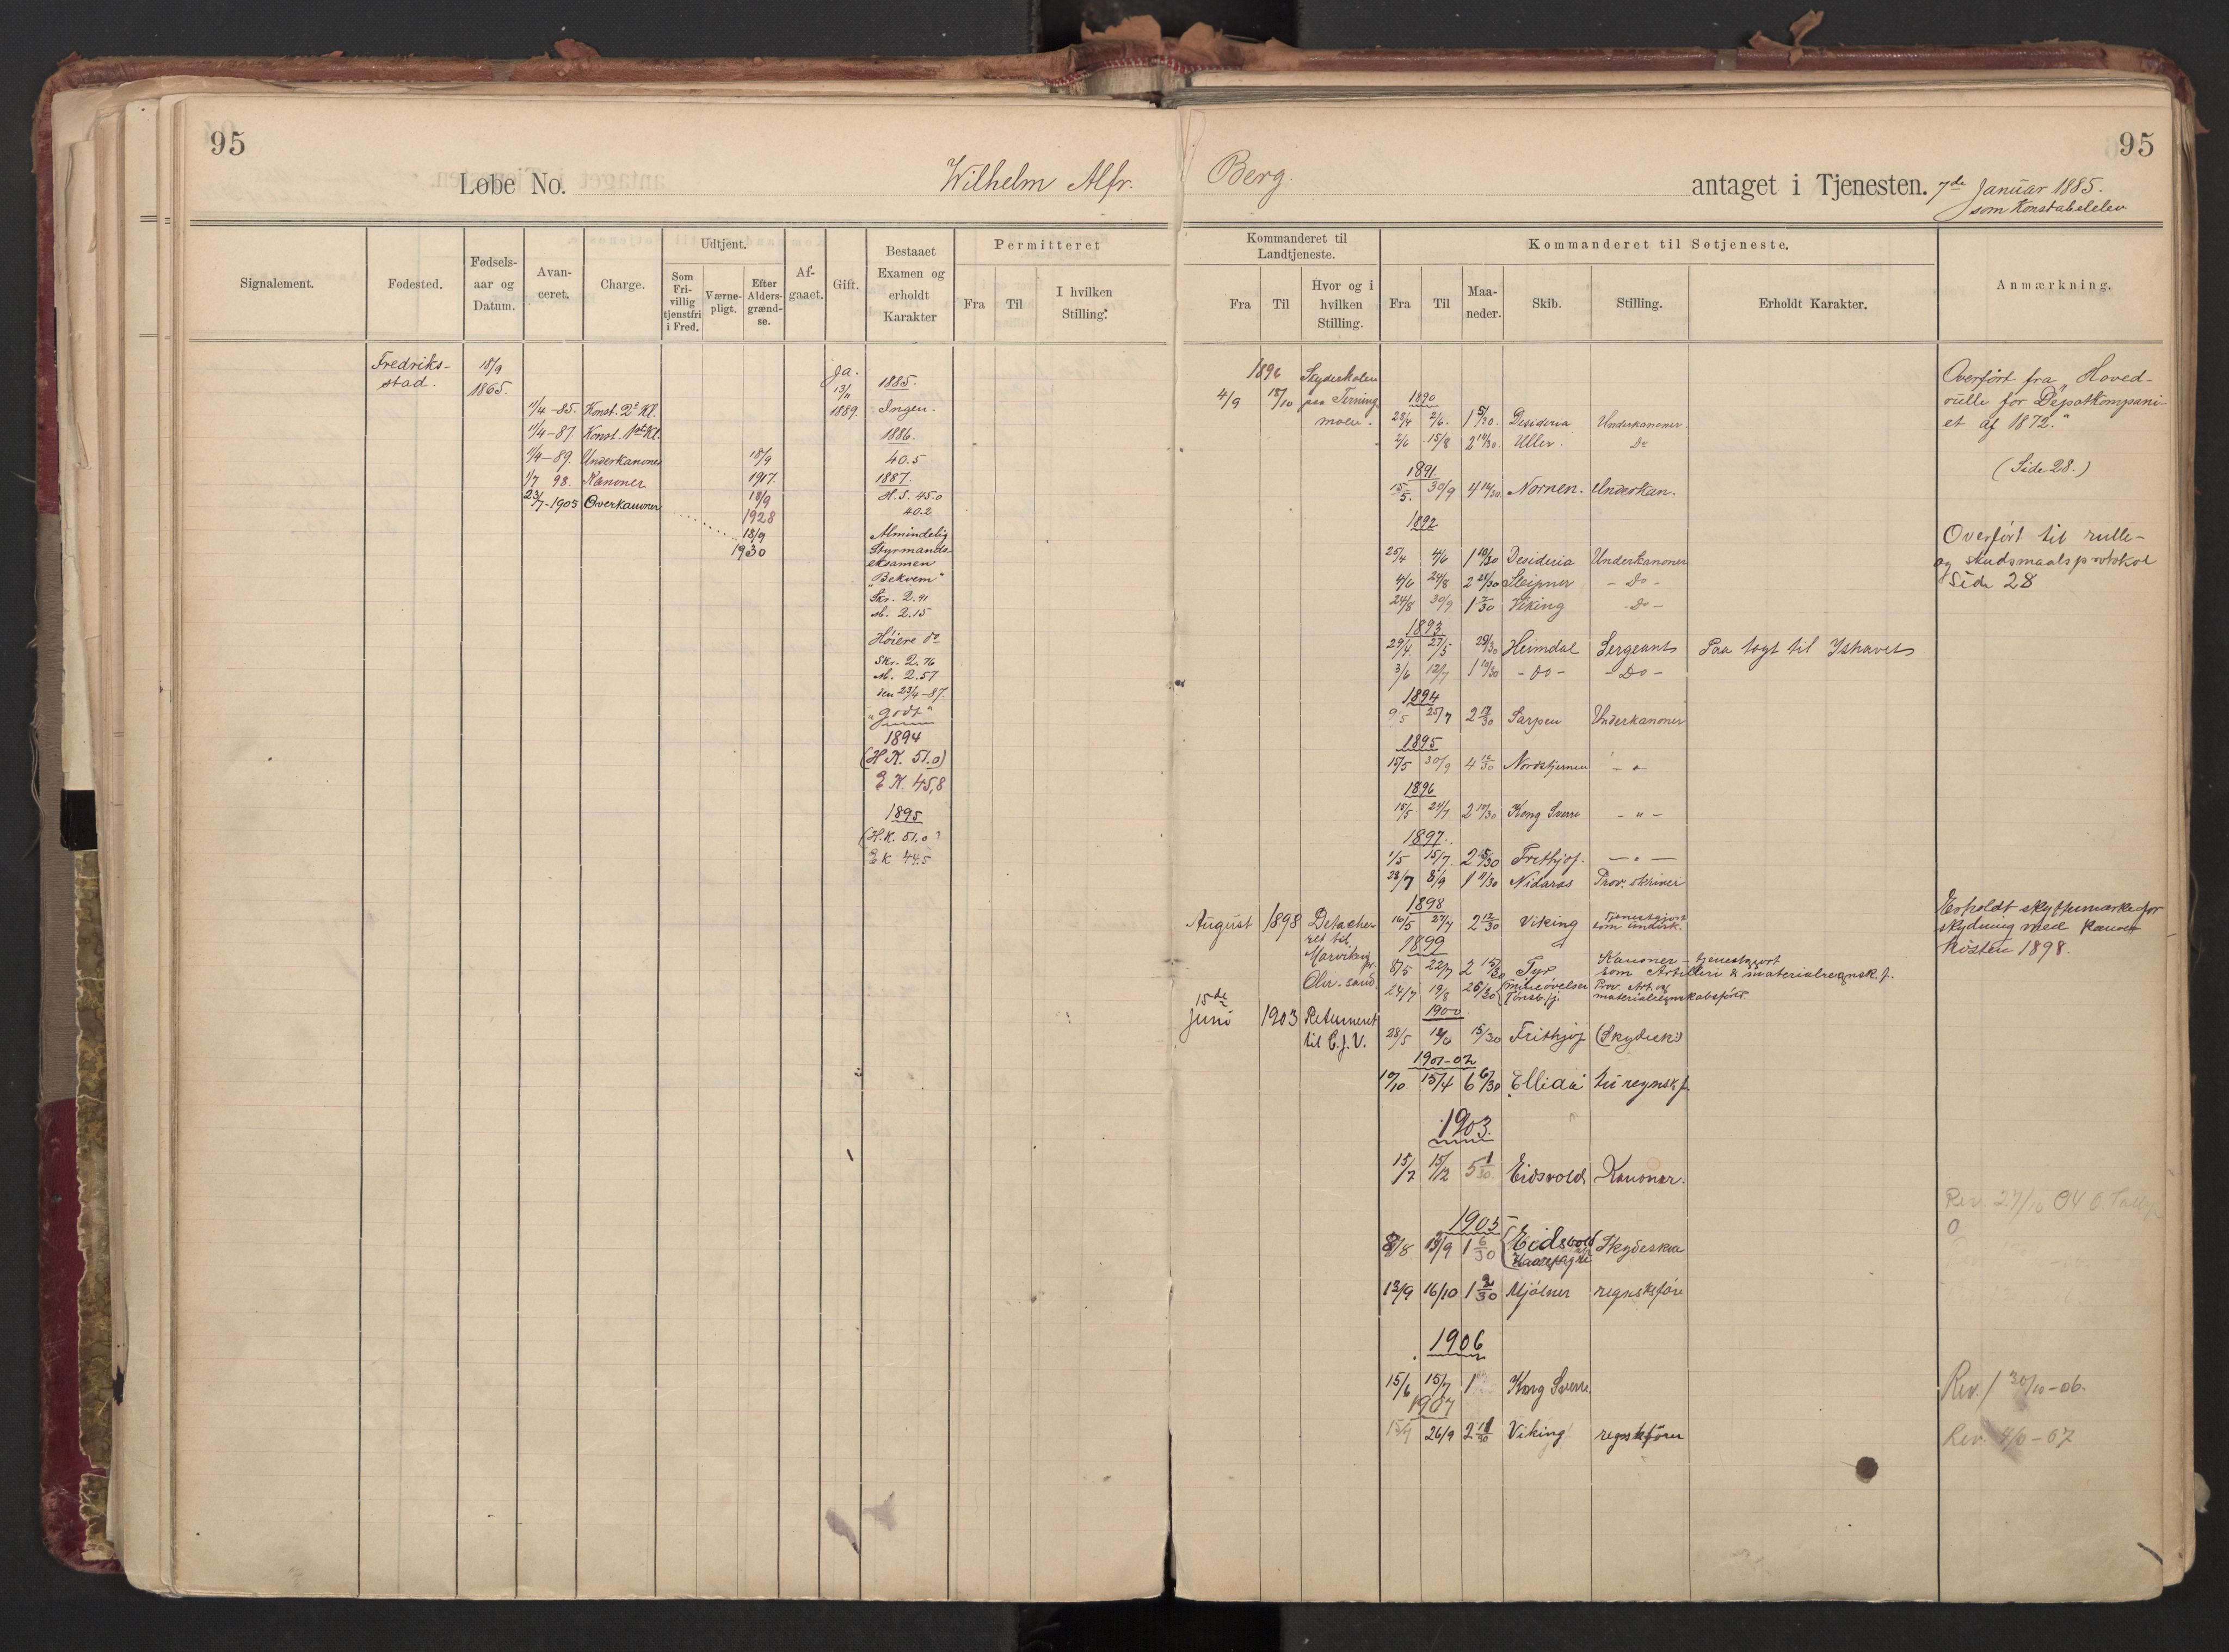 95
Løbe No.
Wilhelm Alfr.
Signalement.
Fødested.
Fødsels-
aar og
Datum.
Avan-
ceret.
Charge.
Udtjent.
Som
Fri-
villig
tjenstfri
i Fred.
Værne-
pligt.
Efter
Alders-
grænd-
se.
Af-
gaaet.
Gift.
Bestaaet
Examen og
erholdt
Karakter
Permitteret
Fra
Til
I hvilken
Stilling.
Fredriks-
stad.
18/9
1865.
11/4-85. Konst. 2e Kl.
11/4-87. Konst. 1ste Kl.
1/4-89. Underkanoner
1/7 98. Kanoner
23/7-1905 Overkanoner
18/9
1917.
18/9
1928
18/9
1930
Ja.
13/11
1889.
1885.
Ingen.
1886.
40.5
1887.
H.S. 45.0
40.2
Almindelig
Styrmands-
eksamen
"Bekvem"
Skr. 2.91
M. 2.15
Høiere do
Skr. 2.76
M. 2.57
den 23/4-87.
"godt"
1894
(H.K. 51.0)
E.K. 45,8
1895
(H.K. 51.0)
E K 44.5
95
Berg.
antaget i Tjenesten. 7de Januar 1885.
som Konstabelelev
Kommanderet til
Landtjeneste.
Fra
Til
Hvor og i
hvilken
Stilling.
Kommanderet til Søtjeneste.
Fra
Til
Maa-
neder.
Skib.
Stilling.
Erholdt Karakter.
Anmærkning.
1896 Skydeskolen
4/9 18/10 paa Terning-
moen.
August 1898 Detache-
ret til
Marvika
pr.
Chr.sand
15de
Juni 1903 Returneret
til C.J.V.
1890
28/4 2/6. 1 5/30. Desideria Underkanoner
2/6 15/8 2 14/30. Uller. Do
1891
15/5. 30/9 4 16/30 Nornen. Underkan.
1892
25/4 4/6 1 10/30 Desideria Underkanoner
4/6 24/8 2 21/30 Sleipner - Do -
24/8 30/9 1 7/30 Viking - Do -
1893
29/4. 27/5 29/30 Heimdal Sergeants Paa togt til Ishavet
3/6 12/7 1 10/30 - do - - Do -
1894
9/5 25/7 2 17/30 Sarpen Underkanoner
1895
15/5 30/9 4 16/30 Nordstjernen - " -
1896
15/5. 24/7 2 10/30 Kong Sverre - " -
1897.
1/5 15/7. 2 15/30 Frithjof. - " -
28/7 8/9 1 11/30 Nidaros Prov. skriver
1898
16/5 27/7 2 12/30 Viking Tjenestgjort
som underk.
1899
8/5 22/7 2 15/30 Tyr Kanoner - tjenestgjort
som Artilleri & materialregnsk.f.
24/7 19/8 26/30 (Mineøvelser Prov. Art. og
Tønsb.fj. materialregnskabsfører.
1900
28/5 12/6 15/30 Frithjof (Skydesk.)
1901-02
10/10 15/4 6 6/30 Ellida til regnsk.f.
1903.
15/7 15/12 5 1/30. Eidsvold Kanoner.
1905
8/8 13/9 1 6/30 Eidsvold Skydeskole
13/9 16/10 1 2/30 Mjølner regnskføre
1906
15/6 15/7 1 Kong Sverre
1907
26/9 2 11/30 Viking regnskfører
Overført fra "Hoved-
rulle for Depotkompani-
et af 1872."
(Side 28.)
Overført til rulle-
og skudsmaalsprotokol
Side 28
Erholdt skyttemærke for
skydning med kanon
høsten 1898.
Rev. 27/10 04
Rev. / 30/10-06.
Rev.